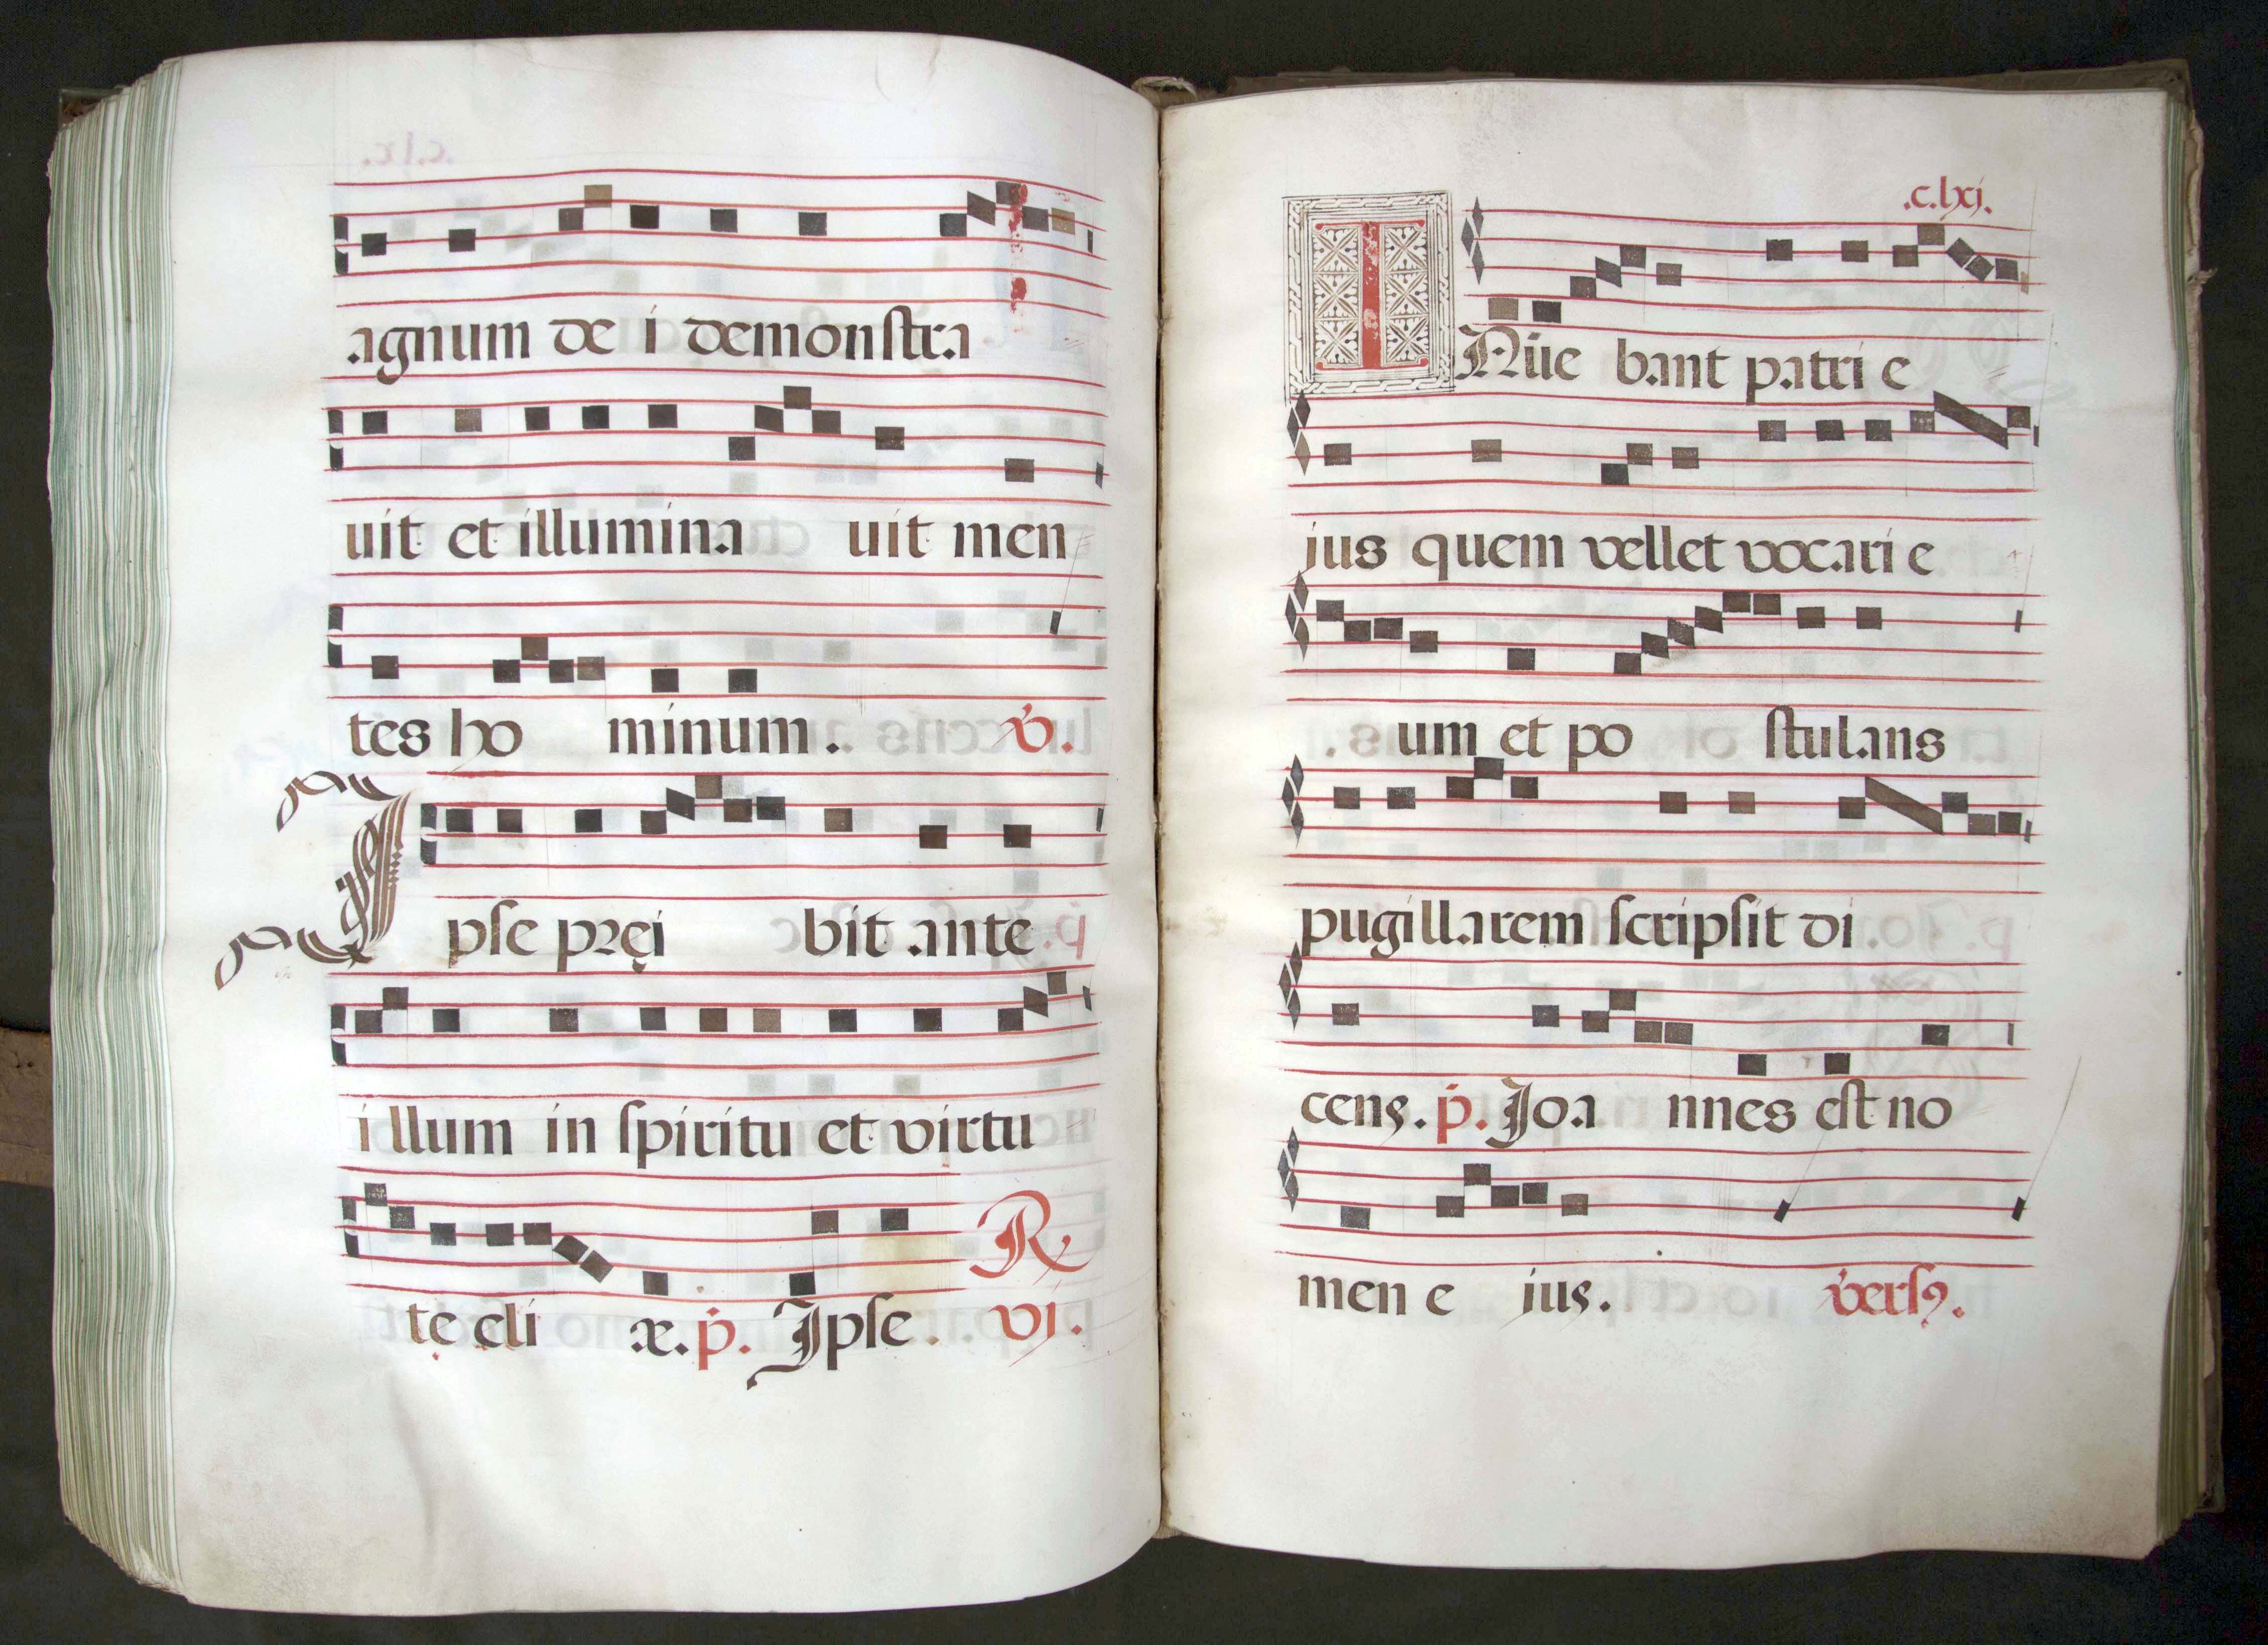 agnum de i demonstra
uit et illumina uit men
tes ho minum. ℣.
Ipse pręi bit ante
illum in spiritu et virtu
te eli æ. p̄. Ipse. vj.
R
.c.lxj.
INūe bant patri e
jus quem vellet vocari e
um et po stulans
pugillarem scripsit di
cens. p̄. Joa nnes est no
men e jus. versꝰ.